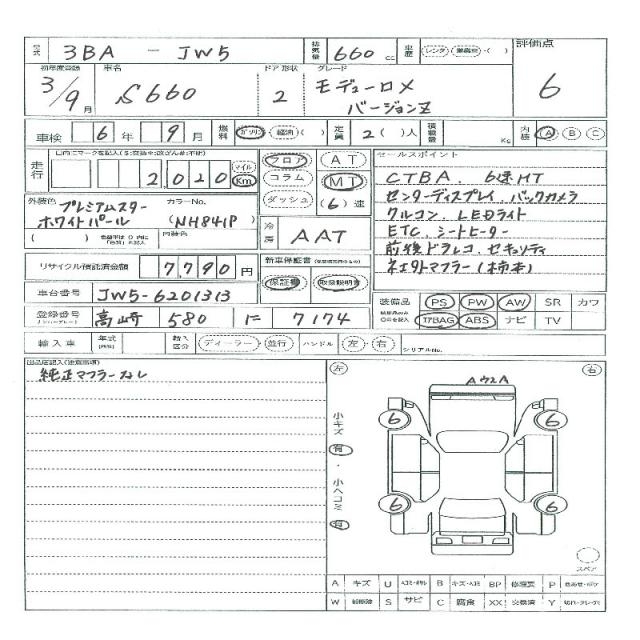 型式 3BA - JW5 排気量 660 cc 車歴 レンタ・( ) 評価点
初年度登録 車名 ドア 形状 グレード
3/9月 S660 2 モデューロX バージョンZ 6
車検 6年 9月 燃料 ガソリン・軽油( ) 定員 2( )人 積載量 Kg 内装 A B C
走行 2,020 マイル Km フロア AT セールスポイント
コラム MT CTBA、6速MT
ダッシュ (6)速 センターディスプレイ、バックカメラ
外装色 プレミアムスター カラーNo. クルコン、LEDライト
ホワイトパール (NH841P) 冷房 AAT ETC、シートヒーター
( ) 内装色 前後ドラレコ、セキュリティ
リサイクル預託済金額 7,790円 新車保証書 保証書 取扱説明書
車台番号 JW5-6201313 装備品 PS PW AW SR カワ
登録番号 高崎 580 に 7174 ｴｱBAG ABS ナビ TV
輸入車 年式 輸入区分 ディーラー・並行 ハンドル 左・右 シリアルNo.
純正マフラーなし
左 右
AウスA
小キズ 有・小ヘコミ 有
6 6
6 6
スペア
A キズ U B キズ・ヘコミ BP P
W S サビ C 腐食 XX 交換済 Y